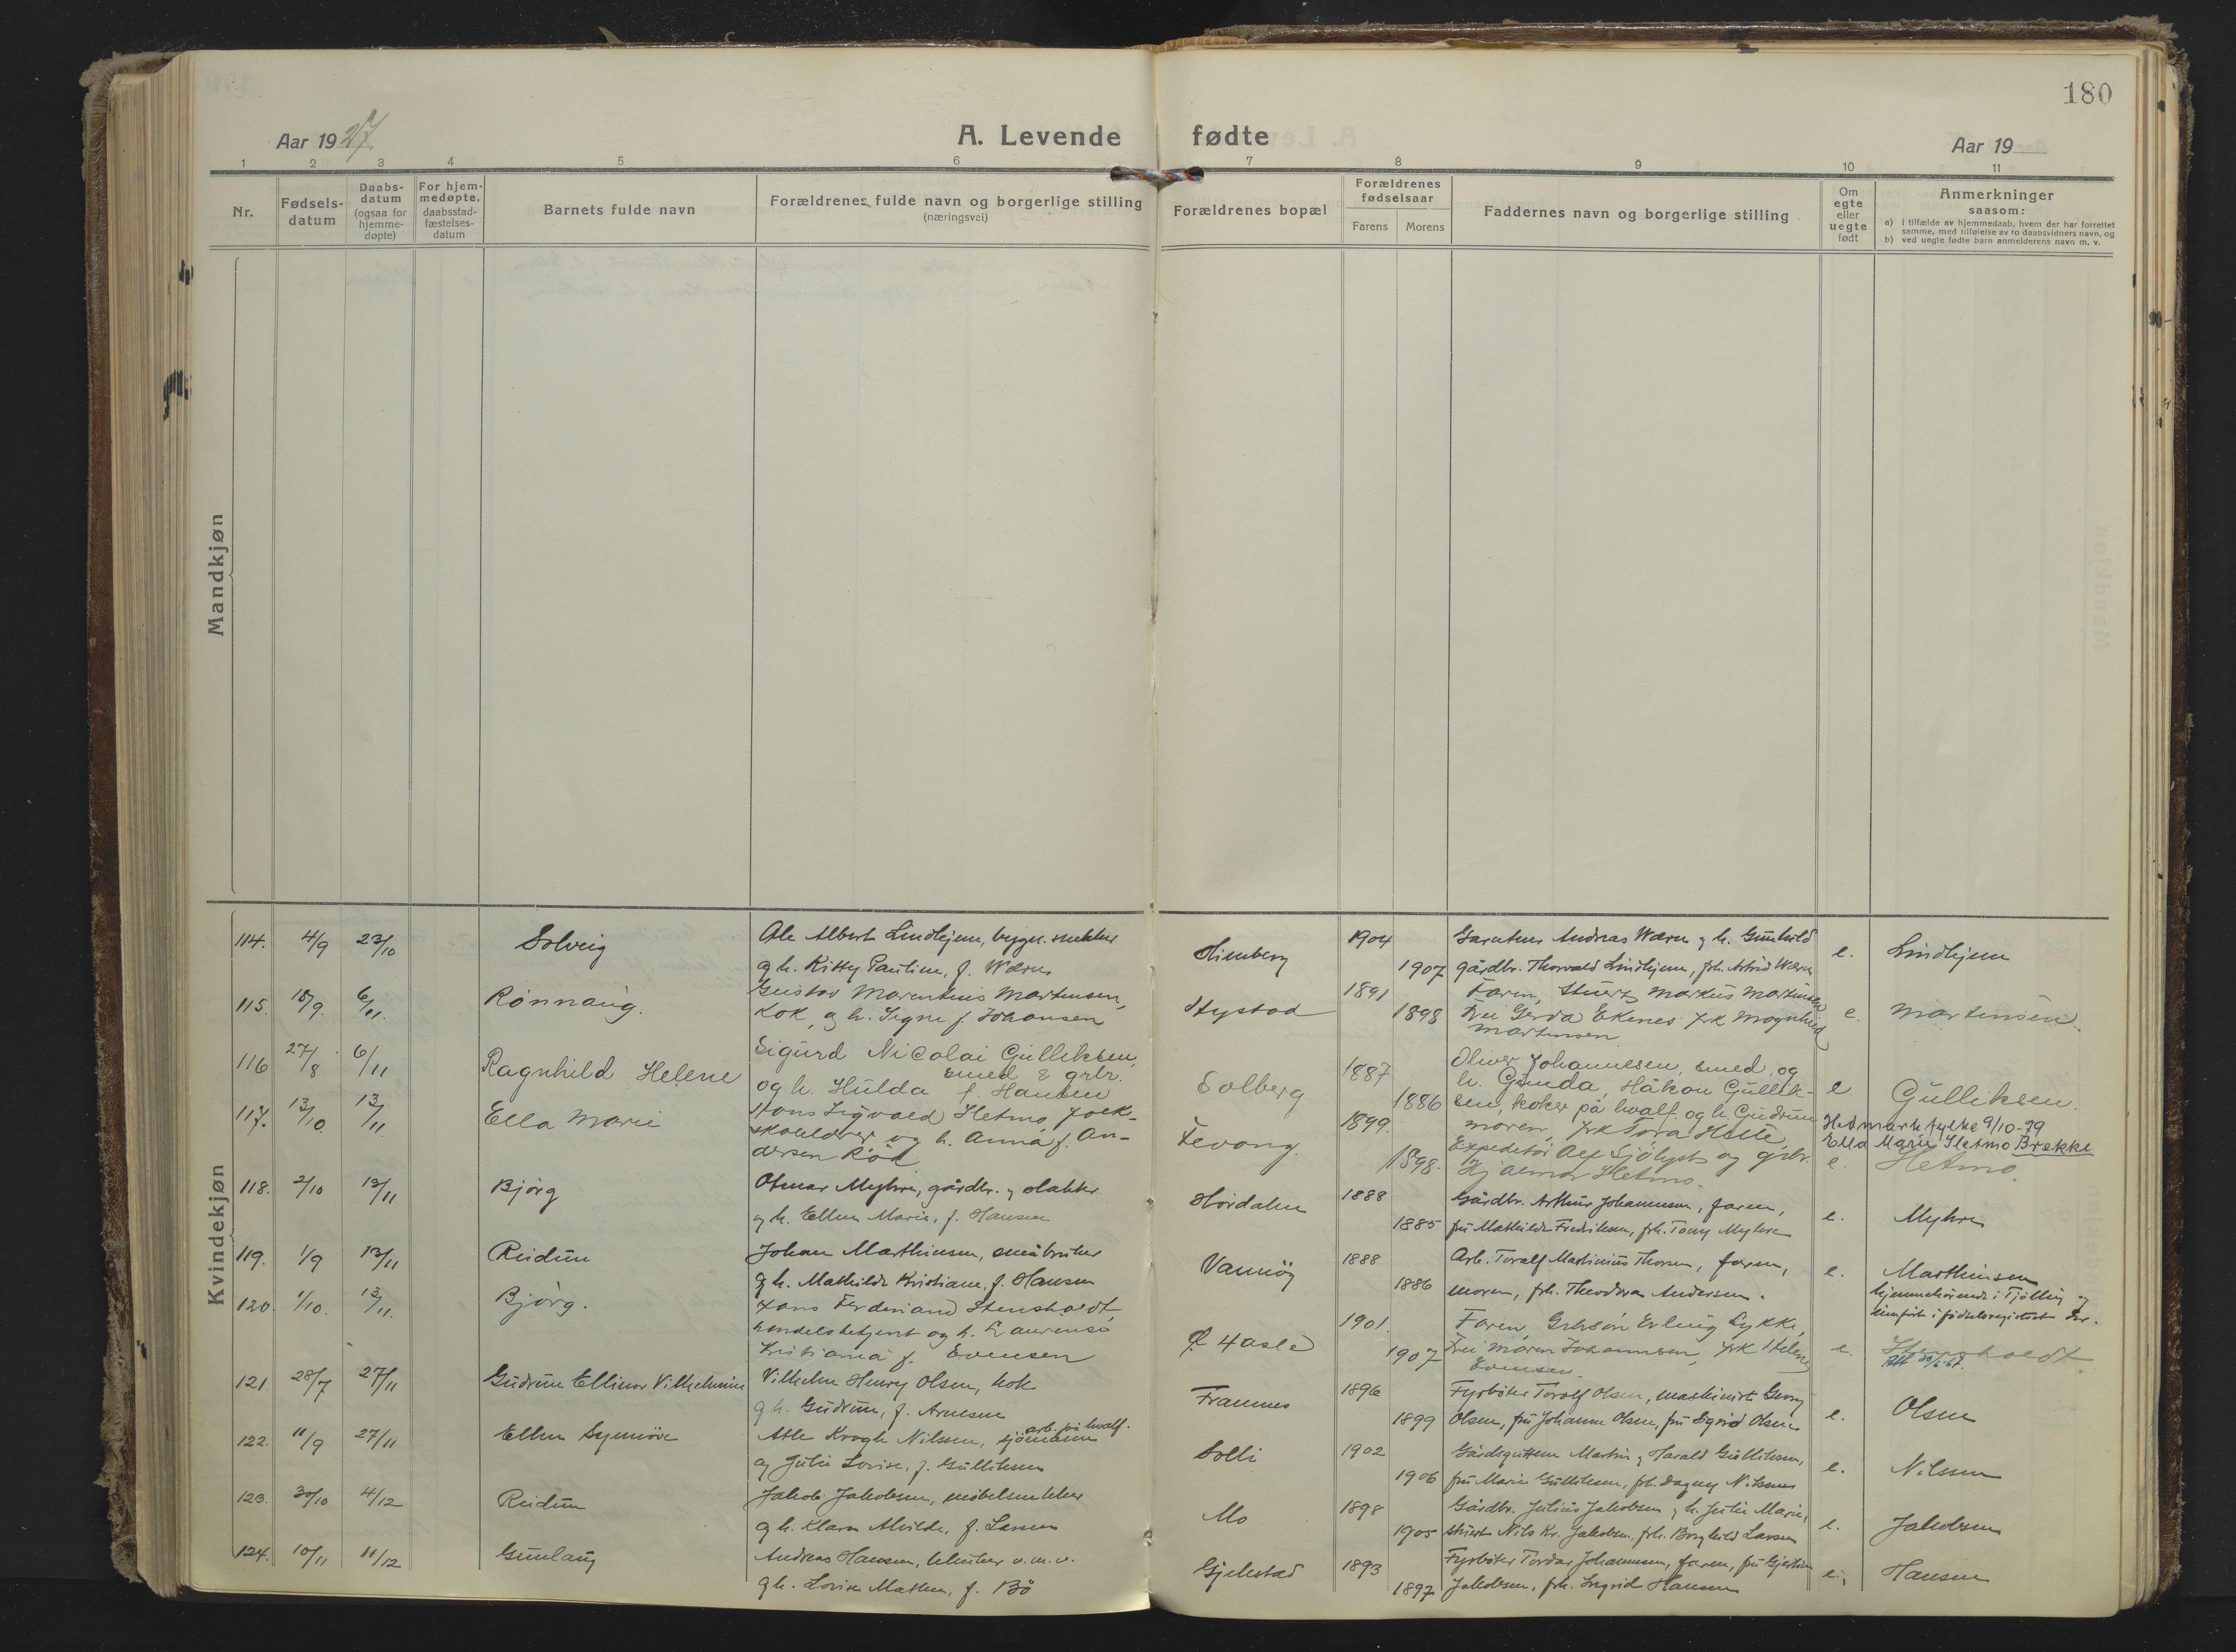 180
Aar 1927.
A. Levende fødte
Aar 19
1 2 3 4 5 6 7 8 9 10 11
Nr.
Fødsels-
datum
Daabs-
datum
(ogsaa for
hjemme-
døpte)
For hjem-
medøpte.
daabsstad-
fæstelses-
datum
Barnets fulde navn
Forældrenes fulde navn og borgerlige stilling
(næringsvei)
Forældrenes bopæl
Forældrenes
fødselsaar
Farens Morens
Faddernes navn og borgerlige stilling
Om
egte
eller
uegte
født
Anmerkninger
saasom:
a) i tilfælde av hjemmedaab, hvem der har forrettet
samme, med tilføielse av to daabsvidners navn, og
b) ved uegte fødte barn anmelderens navn m. v.
Mandkjøn
Kvindekjøn
114. 4/9 23/10 Solveig
Ole Albert Lindhjem, bygn. snekker
og h. Kitty Pauline, f. Wærn
Himberg 1904 1907
Gartner Andreas Wærn og h. Gunhild
gårdbr. Thorvald Lindhjem, frk. Astrid Wærn
e. Lindhjem
115. 18/9. 6/11. Rønnaug.
Gustav Marentius Martensen,
Kok, og h. Signe f. Johansen
Hystad 1891 1898
Faren, Stuert Markus Martinsen
Fru Gerda Ekenes frk Magnhild
Martensen
e. Martensen.
116 27/8 6/11 Ragnhild Helene
Sigurd Nicolai Gulliksen,
smed & grbr.
og h. Hulda f. Hansen
Solberg 1887 1886
Oliver Johannesen, smed, og
h. Gunda, Håkon Gullik-
sen, koker på hvalf. og h. Gudrun
e Gulliksen.
117. 13/10. 13/11. Ella Marie
Hans Sigvald Hetmo, folk-
skolelærer og h. Anna f. An-
dersen Rød
Fevang. 1899. 1898.
moren, frk Tora Holte,
Expeditør Alf Sjølyst og grbr.
Hjalmar Hetmo.
Hedmark fylke 9/10-79
Ella Marie Hetmo Brekke
e. Hetmo.
118. 2/10 13/11 Bjørg
Otmar Myhre, gårdbr. og slakter
og h. Ellen Marie, f. Hansen
Hordalen 1888 1885
Gårdbr. Arthur Johannesen, faren,
fru Mathilde Fredriksen, frk. Tony Myhre
e. Myhre
119. 1/9 13/11 Reidun
Johan Marthinsen, småbruker
og h. Mathilde Kristiane, f. Hansen
Vannøy 1888 1886
Arb. Toralf Martinius Thorsen, faren,
moren, frk. Theodora Andersen.
e. Marthinsen
hjemmehørende i Tjølling og
innført i fødselsregistret der.
120. 1/10. 13/11. Bjørg.
Hans Ferdinand Stensholdt,
handelsbetjent og h. Laurense
Kristiana f. Evensen
Haslé 1901. 1907
Faren, Erling Lykke,
Fru Maren Johannsen, frk Helene
Evensen.
e. Stensholdt
121. 28/7 27/11 Gudrun Ellinor Vilhelmine
Vilhelm Henry Olsen, kok
og h. Gudrun, f. Arnesen
Framnes 1896 1899
Fyrbøter Toralf Olsen, maskinist Georg
Olsen, fru Johanne Olsen, fru Sigrid Olsen
e. Olsen
122. 11/9 27/11 Ellen Synnøve
Atle Krogh Nilssen, sjømann arb. på hvalf.
og Julie Lovise, f. Gulliksen
Solli 1902 1906
Gårdsguttene Martin og Harald Gulliksen,
fru Marie Gulliksen, frk. Dagny Nilssen
e. Nilssen
123. 30/10 4/12 Reidun
Jakob Jakobsen, møbelsnekker
og h. Klara Alvilde, f. Larsen
Mo 1898 1905
Gårdbr. Julius Jakobsen og h. Julie Marie,
stuert Nils Kr. Jakobsen, frk. Borghild Larsen
e. Jakobsen
124. 10/11 11/12 Gunlaug
Andreas Hansen, v. m. v.
og h. Lovise Mathea, f. Bø
Gjelstad 1893 1897
Fyrbøter Tordar Johannessen, faren, fru Gjertine
Jakobsen, frk. Ingrid Hansen
e. Hansen